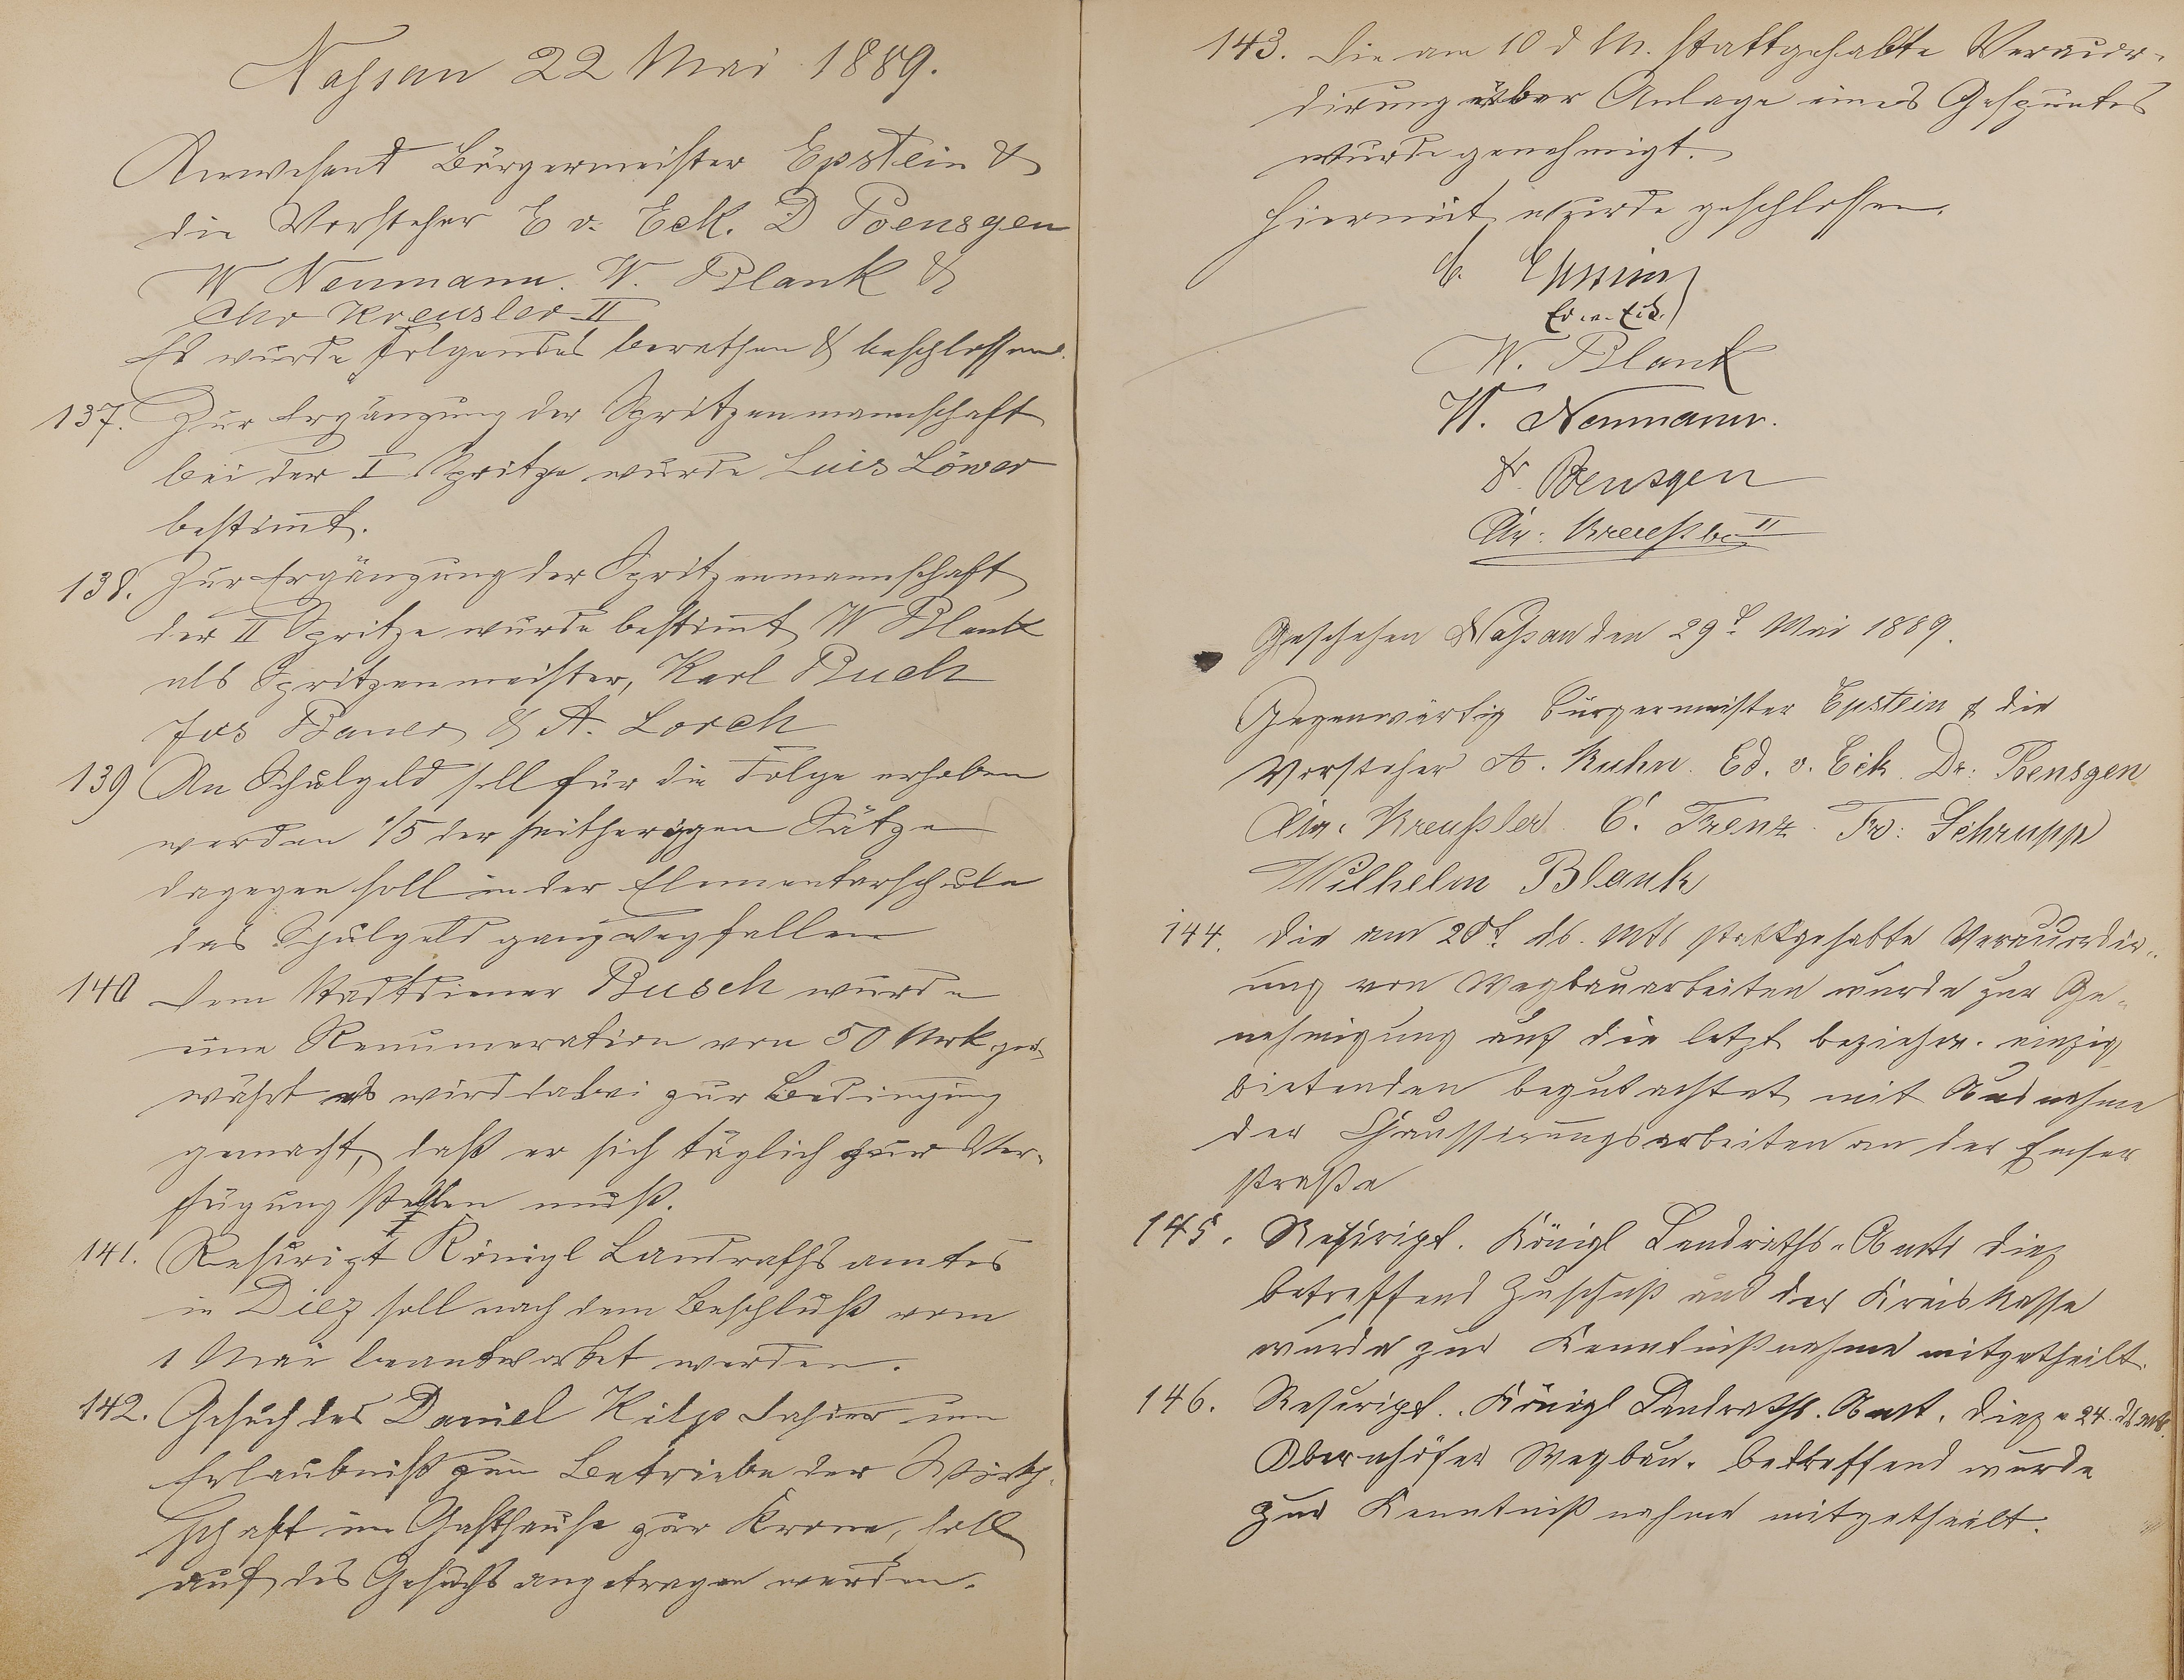 Nassau 22 Mai 1889.
Anwesend Bürgermeister Epstein &
die Vorsteher E v. Eck. D Poensgen
W Neumann. W. Blank &
Chr Kreusler II
Es wurde folgendes berathen & beschlossen.
137. Zur Ergänzung der Spritzenmannschaft
bei der I Spritze wurde Luis Löwer
bestimt.
138. Zur Ergänzung der Spritzenmannschaft
der II Spritze wurde bestimt W Blank
als Spritzenmeister, Karl Buch
Jos Bauer & A. Lorch
139 An Schulgeld soll für die Folge erhoben
werden 1/5 der seitherigen Sätze
dagegen soll in der Elementarschule
das Schulgeld ganz wegfallen
140 Dem Stadtdiener Busch wurde
eine Renumeration von 50 Mrk ge-
währt es wird dabei zur Bedingung
gemacht, daß er sich täglich zur Ver-
fügung stellen muß.
141. Rescript Königl Landrathsamtes
in Diez soll nach dem Beschluß vom
1 Mai beantwortet werden.
142. Gesuch des Daniel Kilp dahier um
Erlaubniß zum Betriebe der Wirth-
schaft im Gasthause zur Krone, soll
auf des Gesuchs angetragen werden.
143. Die am 10 d M. stattgehabte Veraccor-
dirung über Anlage eines
wurde genehmigt.
Hiermit wurde geschlossen.
Epstein
Ed. v. Eck.
W. Blank
W. Neumann.
Dr. Poensgen
Chr: Kreußler II
Geschehen Nassau den 29t Mai 1889.
Gegenwärtig Bürgermeister Epstein & die
Vorsteher A. Kuhn. Ed. v. Eck. Dr: Poensgen
Chr: Kreußler C. Trenz. Fr: Schrupp
Wilhelm Blank
144. Die am 28t. ds. Mts stattgehabte Veraccordir-
ung von Wegbauarbeiten wurde zur Ge-
nehmigung auf die letzt beziehw. einzig
bietenden begutachtet mit Ausnahme
der Chaussirungsarbeiten an der Emser
straße
145. Rescript. Königl Landraths-Amts Diez
betreffend Zuschuß aus der Kreiskasse
wurde zur Kenntnißnahme mitgetheilt.
146. Rescript. Königl Landraths. Amt. Diez v 24. ds Mts.
Obernhöfer Wegbau. betreffend wurde
zur Kenntniß nahme mitgetheilt.